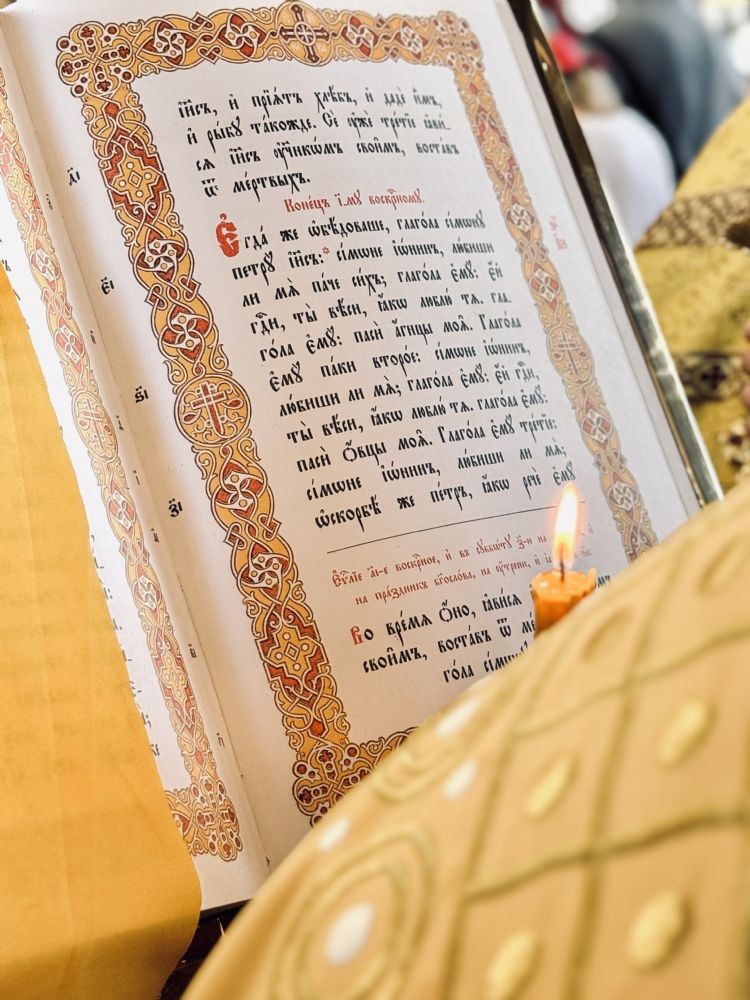 і҆и҃съ, и҆ прїѧ́тъ хлѣ́бъ, и҆ дадѐ и҆̀мъ,
и҆ ры́бꙋ та́кожде. Сѐ ᲂу҆жѐ тре́тїе ꙗ҆ви́-
сѧ і҆и҃съ ᲂу҆чн҃кѡ́мъ свои̑мъ, воста́въ
ѿ ме́ртвыхъ.
Коне́цъ і҃-мꙋ воскрⷭ҇номꙋ.
Є҆гда́ же ѡ҆бѣ́доваше, глаго́ла сі́мѡнꙋ
петрꙋ̀ і҆и҃съ:* сі́мѡне і҆ѡ́нинъ, лю́биши
ли мѧ̀ па́че си́хъ; глаго́ла є҆мꙋ̀: є҆́й
гдⷭ҇и, ты̀ вѣ́си, ꙗ҆́кѡ люблю́ тѧ. гла-
го́ла є҆мꙋ̀: пасѝ а҆́гнцы моѧ̑. Глаго́ла
є҆мꙋ̀ па́ки второ́е: сі́мѡне і҆ѡ́нинъ,
лю́биши ли мѧ̀; глаго́ла є҆мꙋ̀: є҆́й гдⷭ҇и,
ты̀ вѣ́си, ꙗ҆́кѡ люблю́ тѧ. глаго́ла є҆мꙋ̀:
пасѝ ѻ҆́вцы моѧ̑. Глаго́ла є҆мꙋ̀ тре́тїе:
сі́мѡне і҆ѡ́нинъ, лю́биши ли мѧ̀;
ѡ҆скорбѣ́ же пе́тръ, ꙗ҆́кѡ речѐ є҆мꙋ̀
Є҆ѵⷢ҇лїе а҃і-е воскрⷭ҇ное, и҆ въ сꙋббѡ́тꙋ з҃-и на
на пра́здникъ бг҃осло́ва, на ᲂу҆́трени, и҆
Во вре́мѧ ѻ҆́но, ꙗ҆ви́сѧ
свои̑мъ, воста́въ ѿ
гло́ла
д҃і
є҃і
ѕ҃і
з҃і